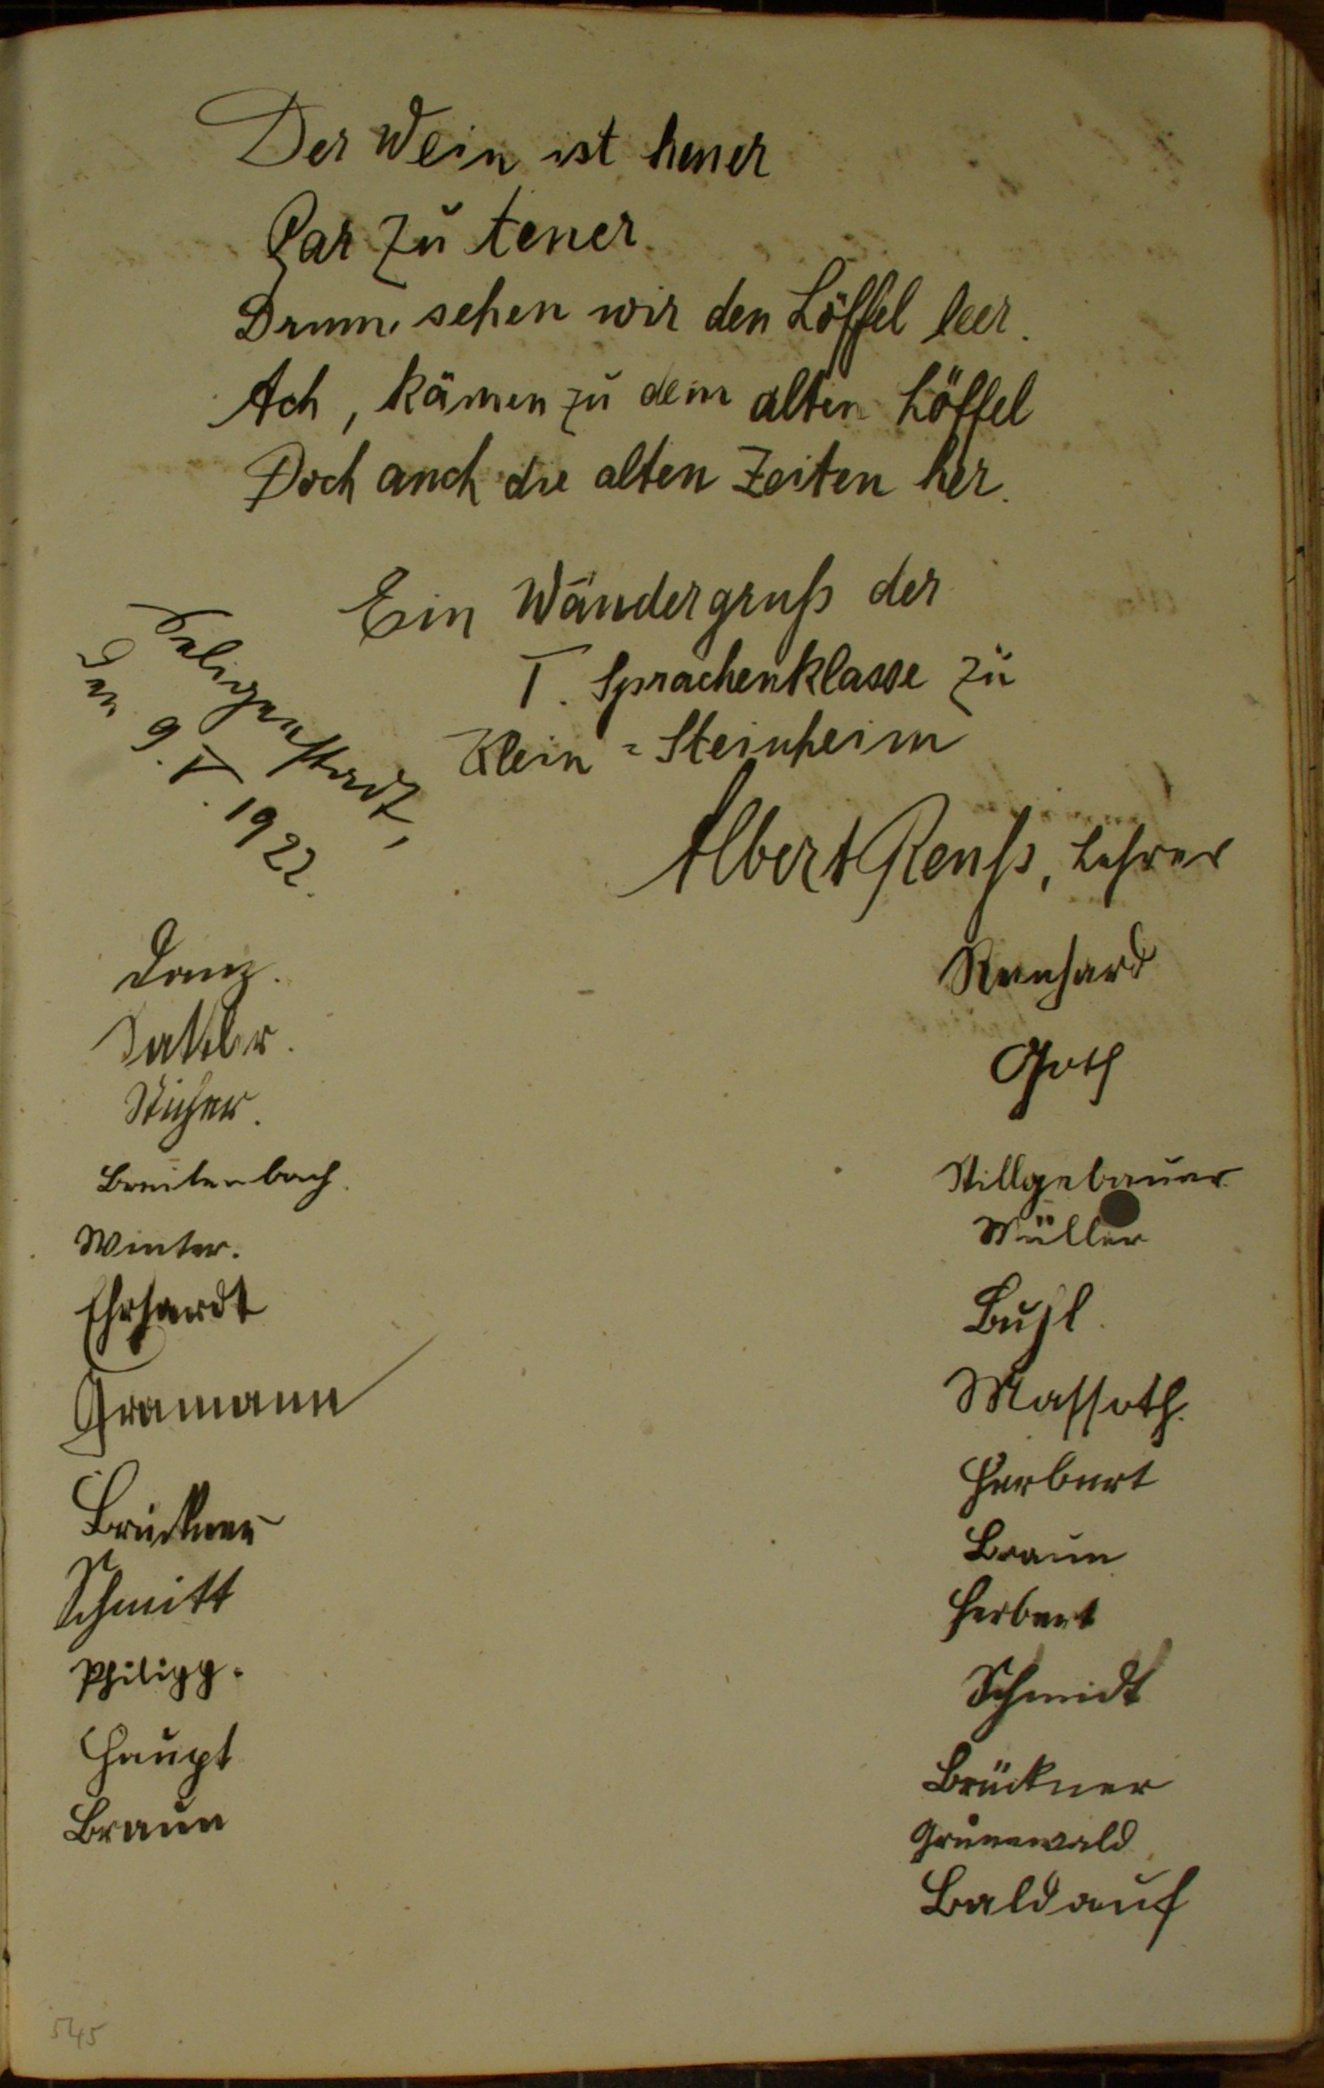 Der Wein ist heuer
Gar zu teuer
Drum sehen wir den Löffel leer.
Ach, kämen zu dem alten Löffel
Doch auch die alten Zeiten her.
Ein Wandergruß der
I. Sprachenklasse zu
Klein-Steinheim
Seligenstadt,
den 9. V. 1922.
Albert Reuß, Lehrer
Danz.
Sattler.
Breitenbach.
Winter.
Ehrhardt
Gramann
Brückner
Schmitt
Philipp.
Haupt
Braun
Reuhard
Goth
Stillgebauer
Müller
Bujl.
Massoth.
Herbert
Braun
Herbert
Schmidt
Brückner
Grünewald
Baldauf
545